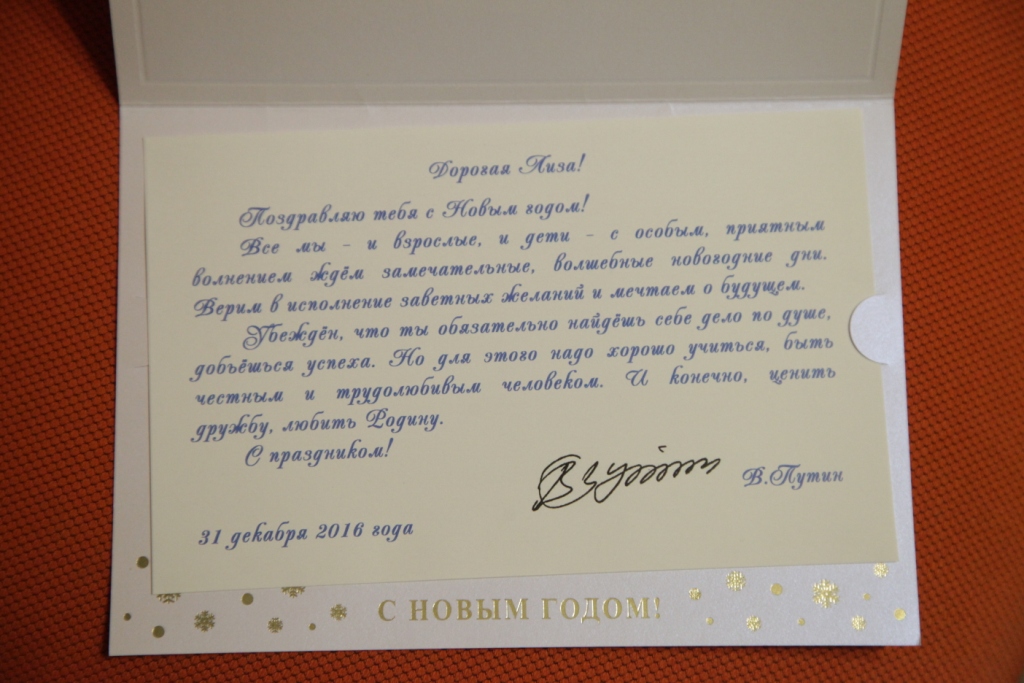 Дорогая Лиза!
Поздравляю тебя с Новым годом!
Все мы - и взрослые, и дети - с особым, приятным
волнением ждём замечательные, волшебные новогодние дни.
Верим в исполнение заветных желаний и мечтаем о будущем.
Убеждён, что ты обязательно найдёшь себе дело по душе,
добьёшься успеха. Но для этого надо хорошо учиться, быть
честным и трудолюбивым человеком. И конечно, ценить
дружбу, любить Родину.
С праздником!
В.Путин
31 декабря 2016 года
С НОВЫМ ГОДОМ!